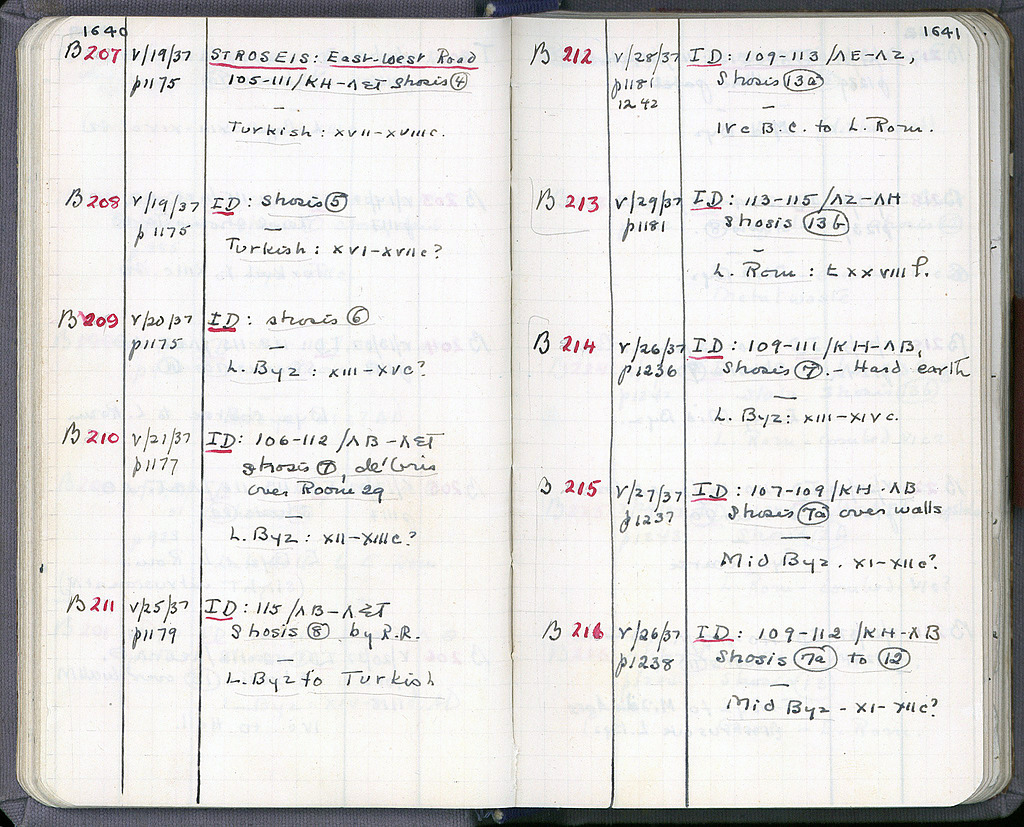 1640
B 207 V/19/37 STROSEIS: East-West Road
p1175 105-111/ΚΗ-ΛΣΤ Strosis ④
—
Turkish: XVII-XVIIIc.
B 208 V/19/37 ID: Strosis ⑤
p1175 —
Turkish: XVI-XVIIc?
B 209 V/20/37 ID: Strosis ⑥
p1175 —
L. Byz: XIII-XVc?
B 210 V/21/37 ID: 106-112/ΛΒ-ΛΣΤ
p1177 Strosis ⑦, débris
over Room 29
—
L. Byz: XII-XIIIc?
B 211 V/25/37 ID: 115/ΛΒ-ΛΣΤ
p1179 Strosis ⑧ by R.R.
—
L. Byz to Turkish
1641
B 212 V/28/37 ID: 109-113/ΛΕ-ΛΖ,
p1181 Strosis (13a)
1242 —
IVc B.C. to L. Rom.
B 213 V/29/37 ID: 113-115/ΛΖ-ΛΗ
p1181 Strosis (13b)
—
L. Rom: t XXVIII f.
B 214 V/26/37 ID: 109-111/ΚΗ-ΛΒ,
p1236 Strosis ⑦.- Hard earth
—
L. Byz: XIII-XIVc.
B 215 V/27/37 ID: 107-109/ΚΗ-ΛΒ
p1237 Strosis (7a) over walls
—
Mid Byz. XI-XIIc?
B 216 V/26/37 ID: 109-112/ΚΗ-ΛΒ
p1238 Strosis (7a) to ⑫
—
Mid Byz - XI-XIIc?